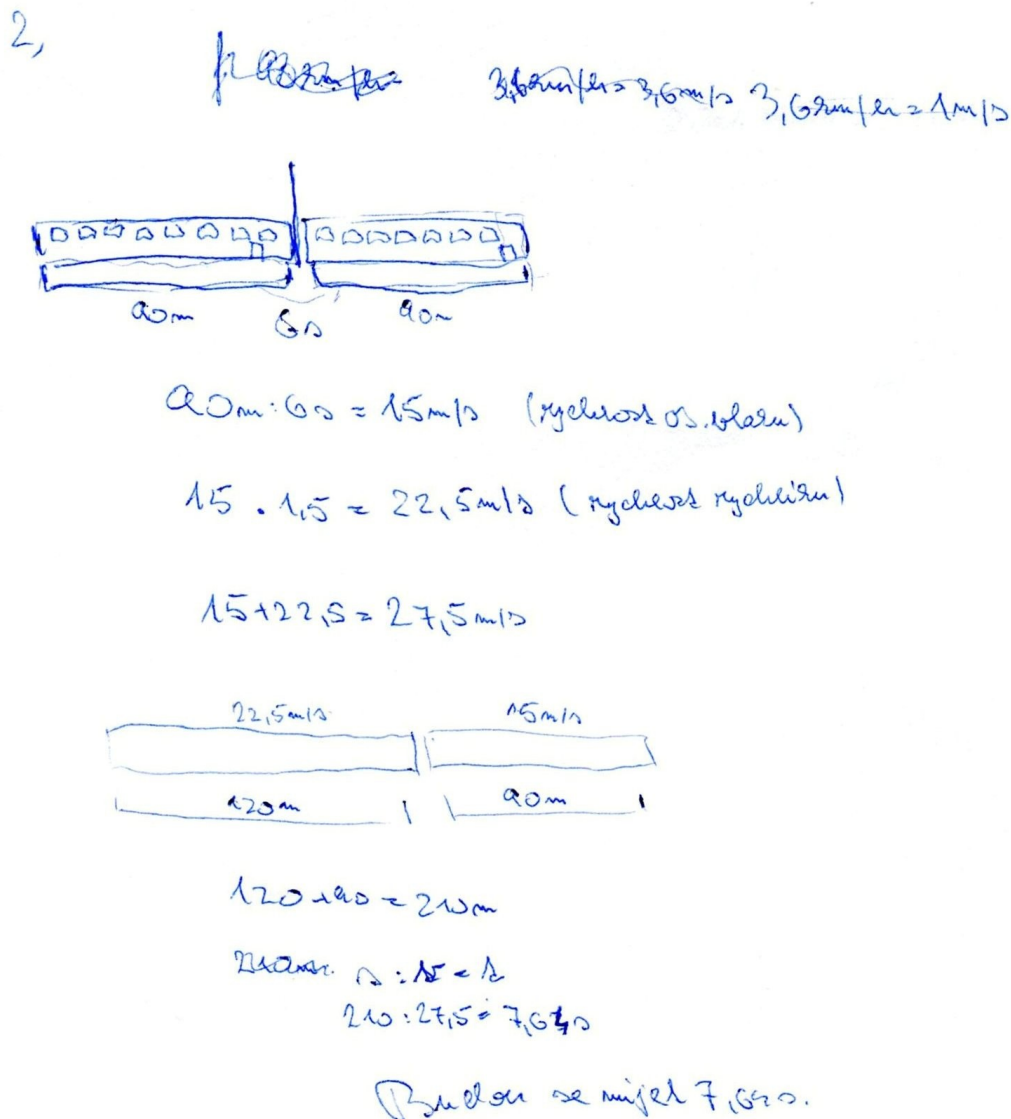 2,
3,6km/h = 3,6m/s 3,6km/h = 1m/s
90m 6s 90m
90m : 6s = 15m/s (rychlost os. vlaku)
15 . 1,5 = 22,5m/s (rychlost rychlíku)
15+22,5 = 27,5m/s
22,5m/s 15m/s
120m 90m
120+90 = 210m
s :
210 : 27,5 =
Budou se míjet